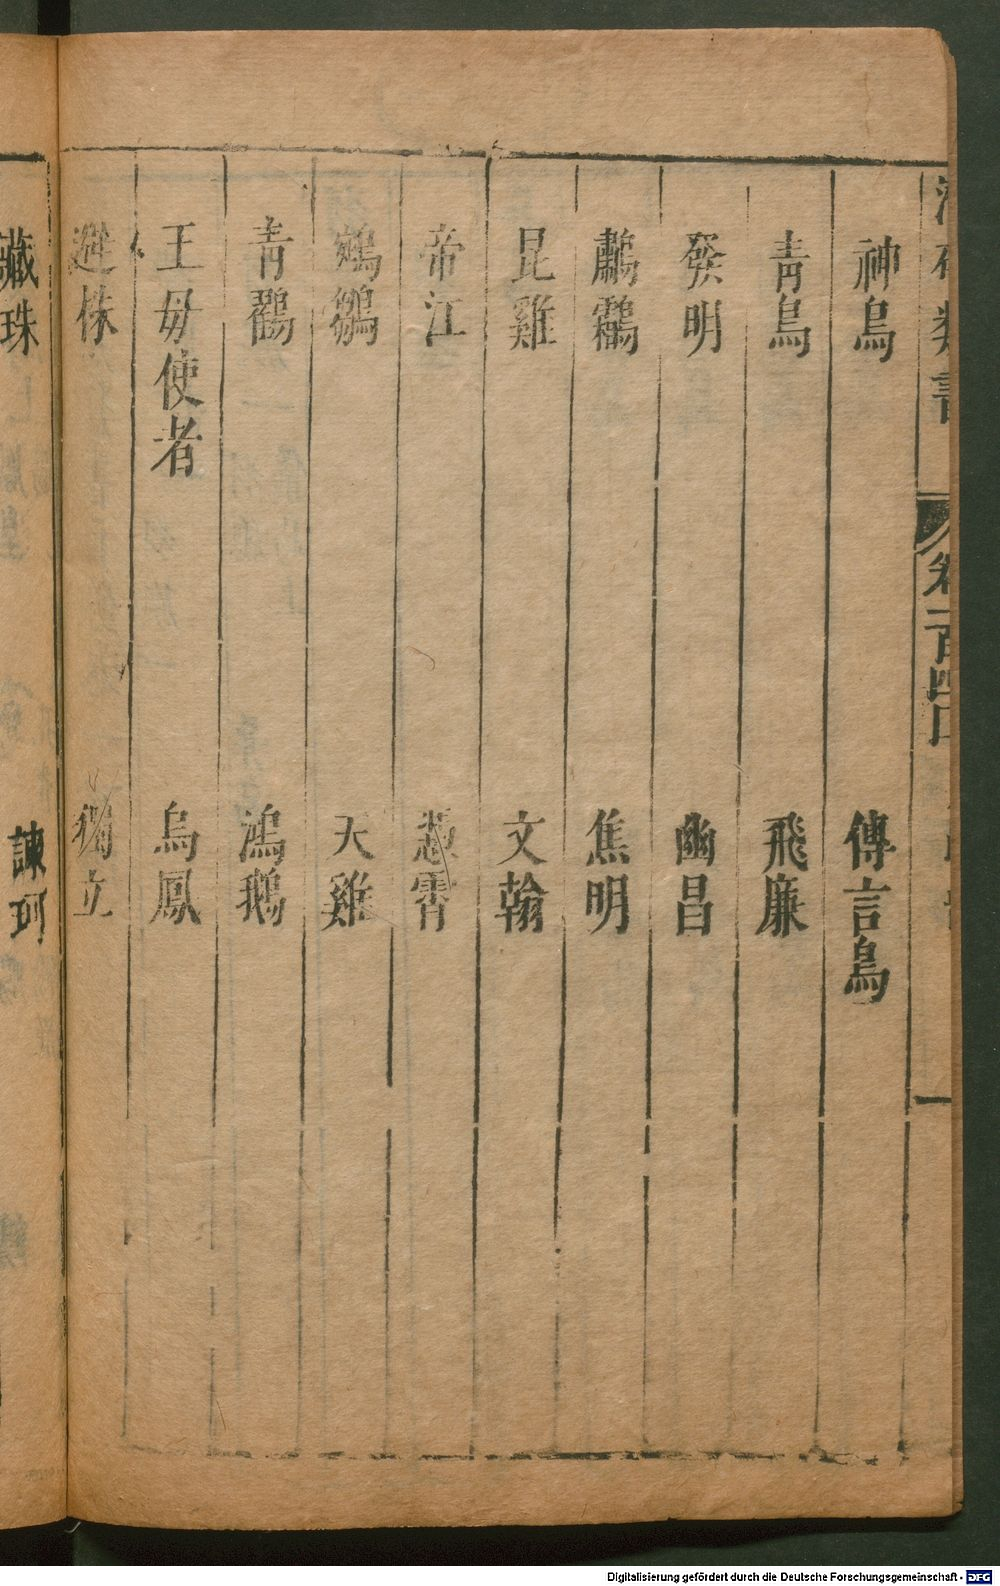 神鳥 傳言鳥
青鳥 飛廉
發明 幽昌
鷫鸘 焦明
昆雞 文翰
帝江
鵷鶵 天雞
青鸐 鴻鵝
王母使者 烏鳳
避株 獨立
藏珠 諫珂
卷一百四
Digitalisierung gefördert durch die Deutsche Forschungsgemeinschaft - DFG